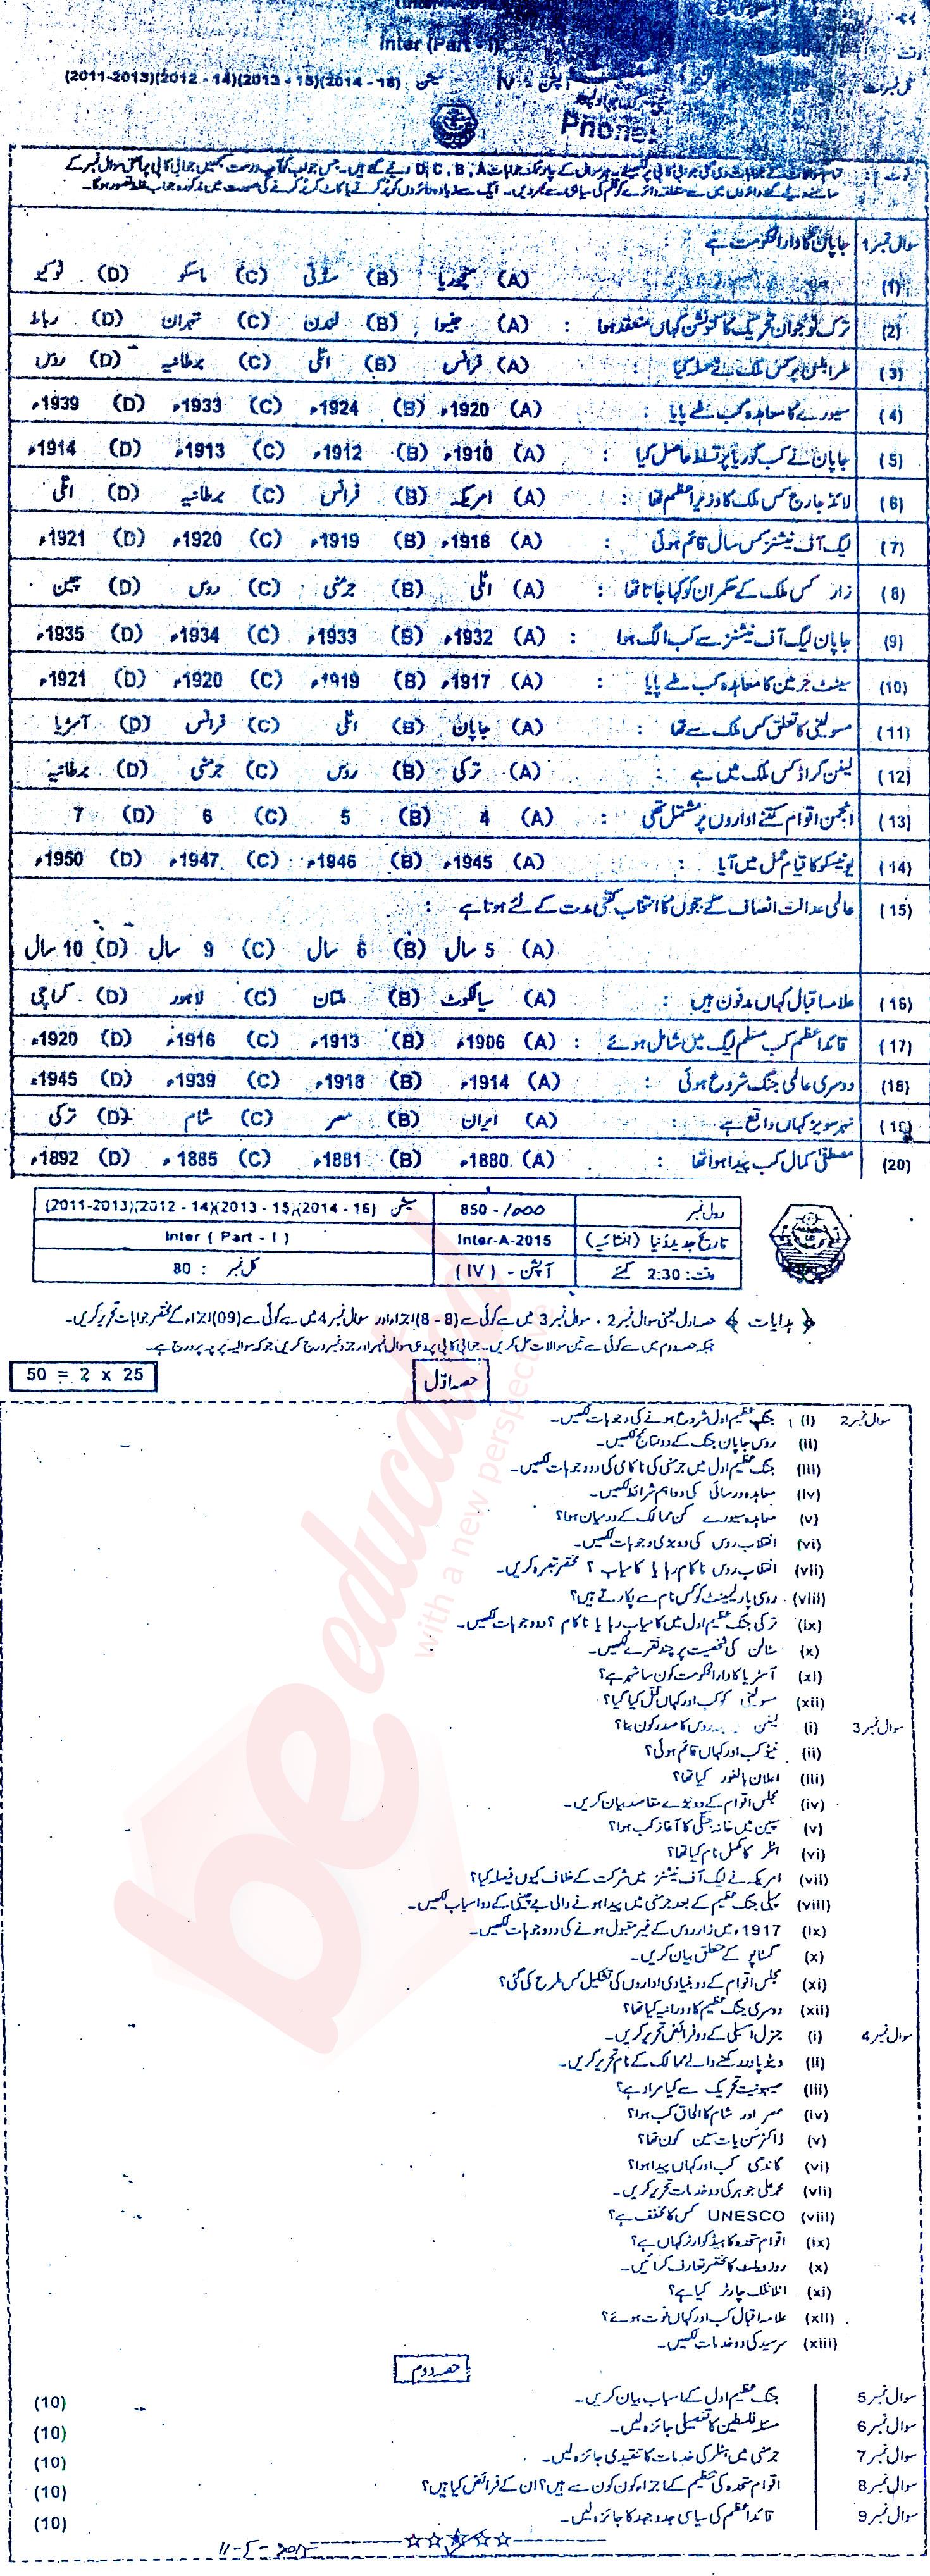 Inter (Part - I)
(2011-2013)(2012 - 14)(2013 - 15)(2014 - 16) سیشن آپشن - IV کل نمبرات
Phone:
سوال نمبر 1 جاپان کا دارالحکومت ہے
(1) (A) منچوریا (B) (C) ماسکو (D) ٹوکیو
(2) ترک نوجوان تحریک کا کنونشن کہاں منعقد ہوا : (A) جنیوا (B) لندن (C) تہران (D) رباط
(3) طرابلس پر کس ملک نے حملہ کیا : (A) فرانس (B) اٹلی (C) برطانیہ (D) روس
(4) سیورے کا معاہدہ کب طے پایا : (A) 1920ء (B) 1924ء (C) 1933ء (D) 1939ء
(5) جاپان نے کب کوریا پر تسلط حاصل کیا : (A) 1910ء (B) 1912ء (C) 1913ء (D) 1914ء
(6) لائڈ جارج کس ملک کا وزیراعظم تھا : (A) امریکہ (B) فرانس (C) برطانیہ (D) اٹلی
(7) لیگ آف نیشنز کس سال قائم ہوئی : (A) 1918ء (B) 1919ء (C) 1920ء (D) 1921ء
(8) زار کس ملک کے حکمران کو کہا جاتا تھا : (A) اٹلی (B) جرمنی (C) روس (D) چین
(9) جاپان لیگ آف نیشنز سے کب الگ ہوا : (A) 1932ء (B) 1933ء (C) 1934ء (D) 1935ء
(10) سینٹ جرمین کا معاہدہ کب طے پایا : (A) 1917ء (B) 1919ء (C) 1920ء (D) 1921ء
(11) مسولینی کا تعلق کس ملک سے تھا : (A) جاپان (B) اٹلی (C) فرانس (D) آسٹریا
(12) لینن گراڈ کس ملک میں ہے : (A) ترکی (B) روس (C) جرمنی (D) برطانیہ
(13) انجمن اقوام کتنے اداروں پر مشتمل تھی : (A) 4 (B) 5 (C) 6 (D) 7
(14) یونیسکو کا قیام عمل میں آیا : (A) 1945ء (B) 1946ء (C) 1947ء (D) 1950ء
(15) عالمی عدالت انصاف کے ججوں کا انتخاب کتنی مدت کے لئے ہوتا ہے :
(A) 5 سال (B) 6 سال (C) 9 سال (D) 10 سال
(16) علامہ اقبال کہاں مدفون ہیں : (A) سیالکوٹ (B) ملتان (C) لاہور (D) کراچی
(17) قائداعظم کب مسلم لیگ میں شامل ہوئے : (A) 1906ء (B) 1913ء (C) 1916ء (D) 1920ء
(18) دوسری عالمی جنگ شروع ہوئی : (A) 1914ء (B) 1918ء (C) 1939ء (D) 1945ء
(19) نہر سویز کہاں واقع ہے : (A) ایران (B) مصر (C) شام (D) ترکی
(20) مصطفیٰ کمال کب پیدا ہوا تھا : (A) 1880ء (B) 1881ء (C) 1885ء (D) 1892ء
رول نمبر 850 - 1000 سیشن (2011-2013)(2012 - 14)(2013 - 15)(2014 - 16)
تاریخ جدید دنیا (انشائیہ) Inter-A-2015 Inter ( Part - I )
وقت : 2:30 گھنٹے آپشن - (IV) کل نمبر : 80
﴿ ہدایات ﴾ حصہ اول یعنی سوال نمبر 2 ، سوال نمبر 3 میں سے کوئی سے (8 - 8) اجزاء اور سوال نمبر 4 میں سے کوئی سے (09) اجزاء کے مختصر جوابات تحریر کریں۔
جبکہ حصہ دوم میں سے کوئی سے تین سوالات حل کریں۔ جوابی کاپی پر وہی سوال نمبر اور جزو نمبر درج کریں جو کہ سوالیہ پرچہ پر درج ہے۔
حصہ اوّل 50 = 2 x 25
سوال نمبر 2 (i) جنگ عظیم اول شروع ہونے کی وجوہات لکھیں۔
(ii) روس جاپان جنگ کے دو نتائج لکھیں۔
(iii) جنگ عظیم اول میں جرمنی کی ناکامی کی دو وجوہات لکھیں۔
(iv) معاہدہ ورسائی کی دو اہم شرائط لکھیں۔
(v) معاہدہ سیورے کن ممالک کے درمیان ہوا؟
(vi) انقلاب روس کی دو بڑی وجوہات لکھیں۔
(vii) انقلاب روس ناکام رہا یا کامیاب ؟ مختصر تبصرہ کریں۔
(viii) روسی پارلیمنٹ کو کس نام سے پکارتے ہیں؟
(ix) ترکی جنگ عظیم اول میں کامیاب رہا یا ناکام ؟ دو وجوہات لکھیں۔
(x) سٹالن کی شخصیت پر چند فقرے لکھیں۔
(xi) آسٹریا کا دارالحکومت کون سا شہر ہے؟
(xii) مسولینی کو کب اور کہاں قتل کیا گیا؟
سوال نمبر 3 (i) لینن روس کا صدر کون بنا؟
(ii) نیٹو کب اور کہاں قائم ہوئی؟
(iii) اعلان بالفور کیا تھا؟
(iv) مجلس اقوام کے دو بڑے مقاصد بیان کریں۔
(v) سپین میں خانہ جنگی کا آغاز کب ہوا؟
(vi) ہٹلر کا مکمل نام کیا تھا؟
(vii) امریکہ نے لیگ آف نیشنز میں شرکت کے خلاف کیوں فیصلہ کیا؟
(viii) پہلی جنگ عظیم کے بعد جرمنی میں پیدا ہونے والی بے چینی کے دو اسباب لکھیں۔
(ix) 1917ء میں زار روس کے غیر مقبول ہونے کی دو وجوہات لکھیں۔
(x) گسٹاپو کے متعلق بیان کریں۔
(xi) مجلس اقوام کے دو بنیادی اداروں کی تشکیل کس طرح کی گئی؟
(xii) دوسری جنگ عظیم کا دورانیہ کیا تھا؟
سوال نمبر 4 (i) جنرل اسمبلی کے دو فرائض تحریر کریں۔
(ii) ویٹو پاور رکھنے والے ممالک کے نام تحریر کریں۔
(iii) صیہونیت تحریک سے کیا مراد ہے؟
(iv) مصر اور شام کا الحاق کب ہوا؟
(v) ڈاکٹر سن یات سین کون تھا؟
(vi) گاندھی کب اور کہاں پیدا ہوا؟
(vii) محمد علی جوہر کی دو خدمات تحریر کریں۔
(viii) UNESCO کس کا مخفف ہے؟
(ix) اقوام متحدہ کا ہیڈ کوارٹر کہاں ہے؟
(x) روز ویلٹ کا مختصر تعارف کرائیں۔
(xi) اٹلانٹک چارٹر کیا ہے؟
(xii) علامہ اقبال کب اور کہاں فوت ہوئے؟
(xiii) سرسید کی دو خدمات لکھیں۔
حصہ دوم
سوال نمبر 5 جنگ عظیم اول کے اسباب بیان کریں۔ (10)
سوال نمبر 6 مسئلہ فلسطین کا تفصیلی جائزہ لیں۔ (10)
سوال نمبر 7 جرمنی میں ہٹلر کی خدمات کا تنقیدی جائزہ لیں۔ (10)
سوال نمبر 8 اقوام متحدہ کی تنظیم کے اجزاء کون کون سے ہیں؟ ان کے فرائض کیا ہیں؟ (10)
سوال نمبر 9 قائداعظم کی سیاسی جدوجہد کا جائزہ لیں۔ (10)
be educated
with a new perspective